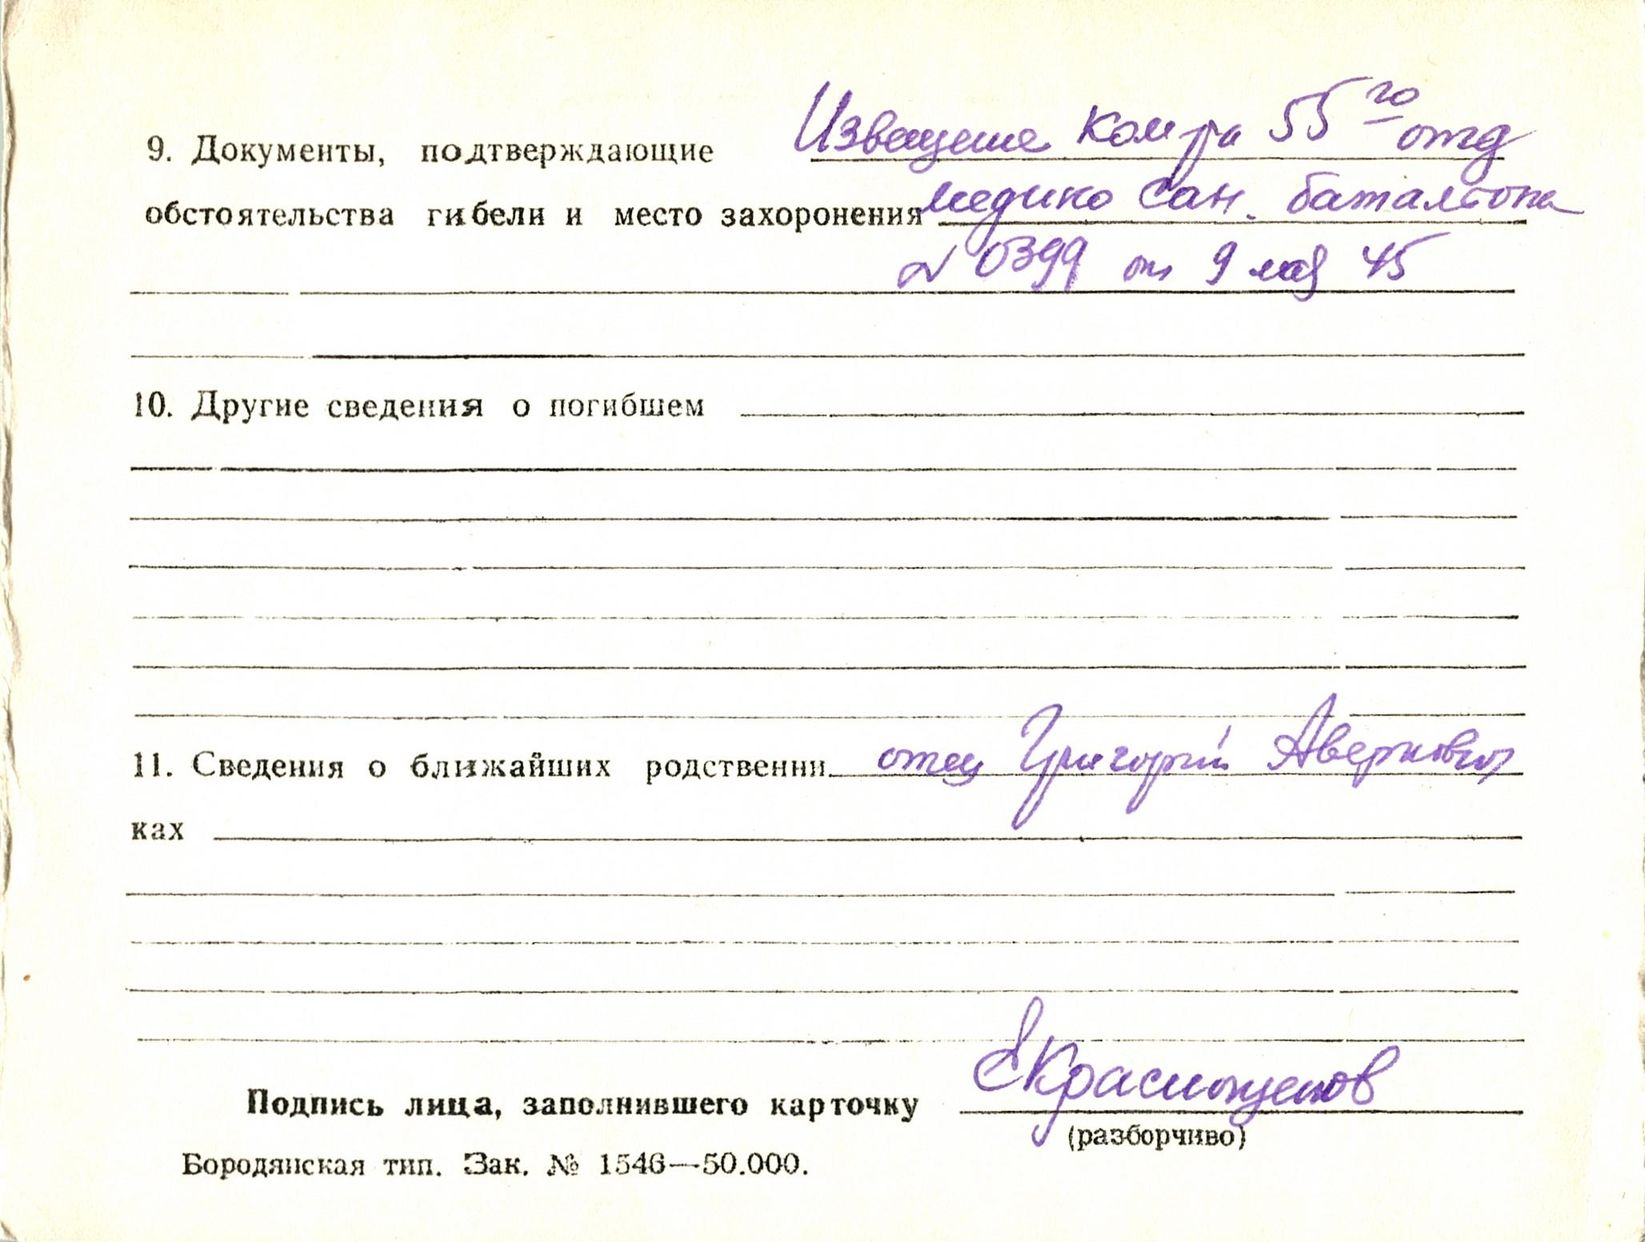 9. Документы, подтверждающие Извещение ком-ра 55го отд
обстоятельства гибели и место захоронения медико сан. баталиона
№ 0399 от 9 мая 45
10. Другие сведения о погибшем
11. Сведения о ближайших родственни- отец Григорий Аверкович
ках
Подпись лица, заполнившего карточку ЕКраснощеков
(разборчиво)
Бородянская тип. Зак. № 1546—50.000.